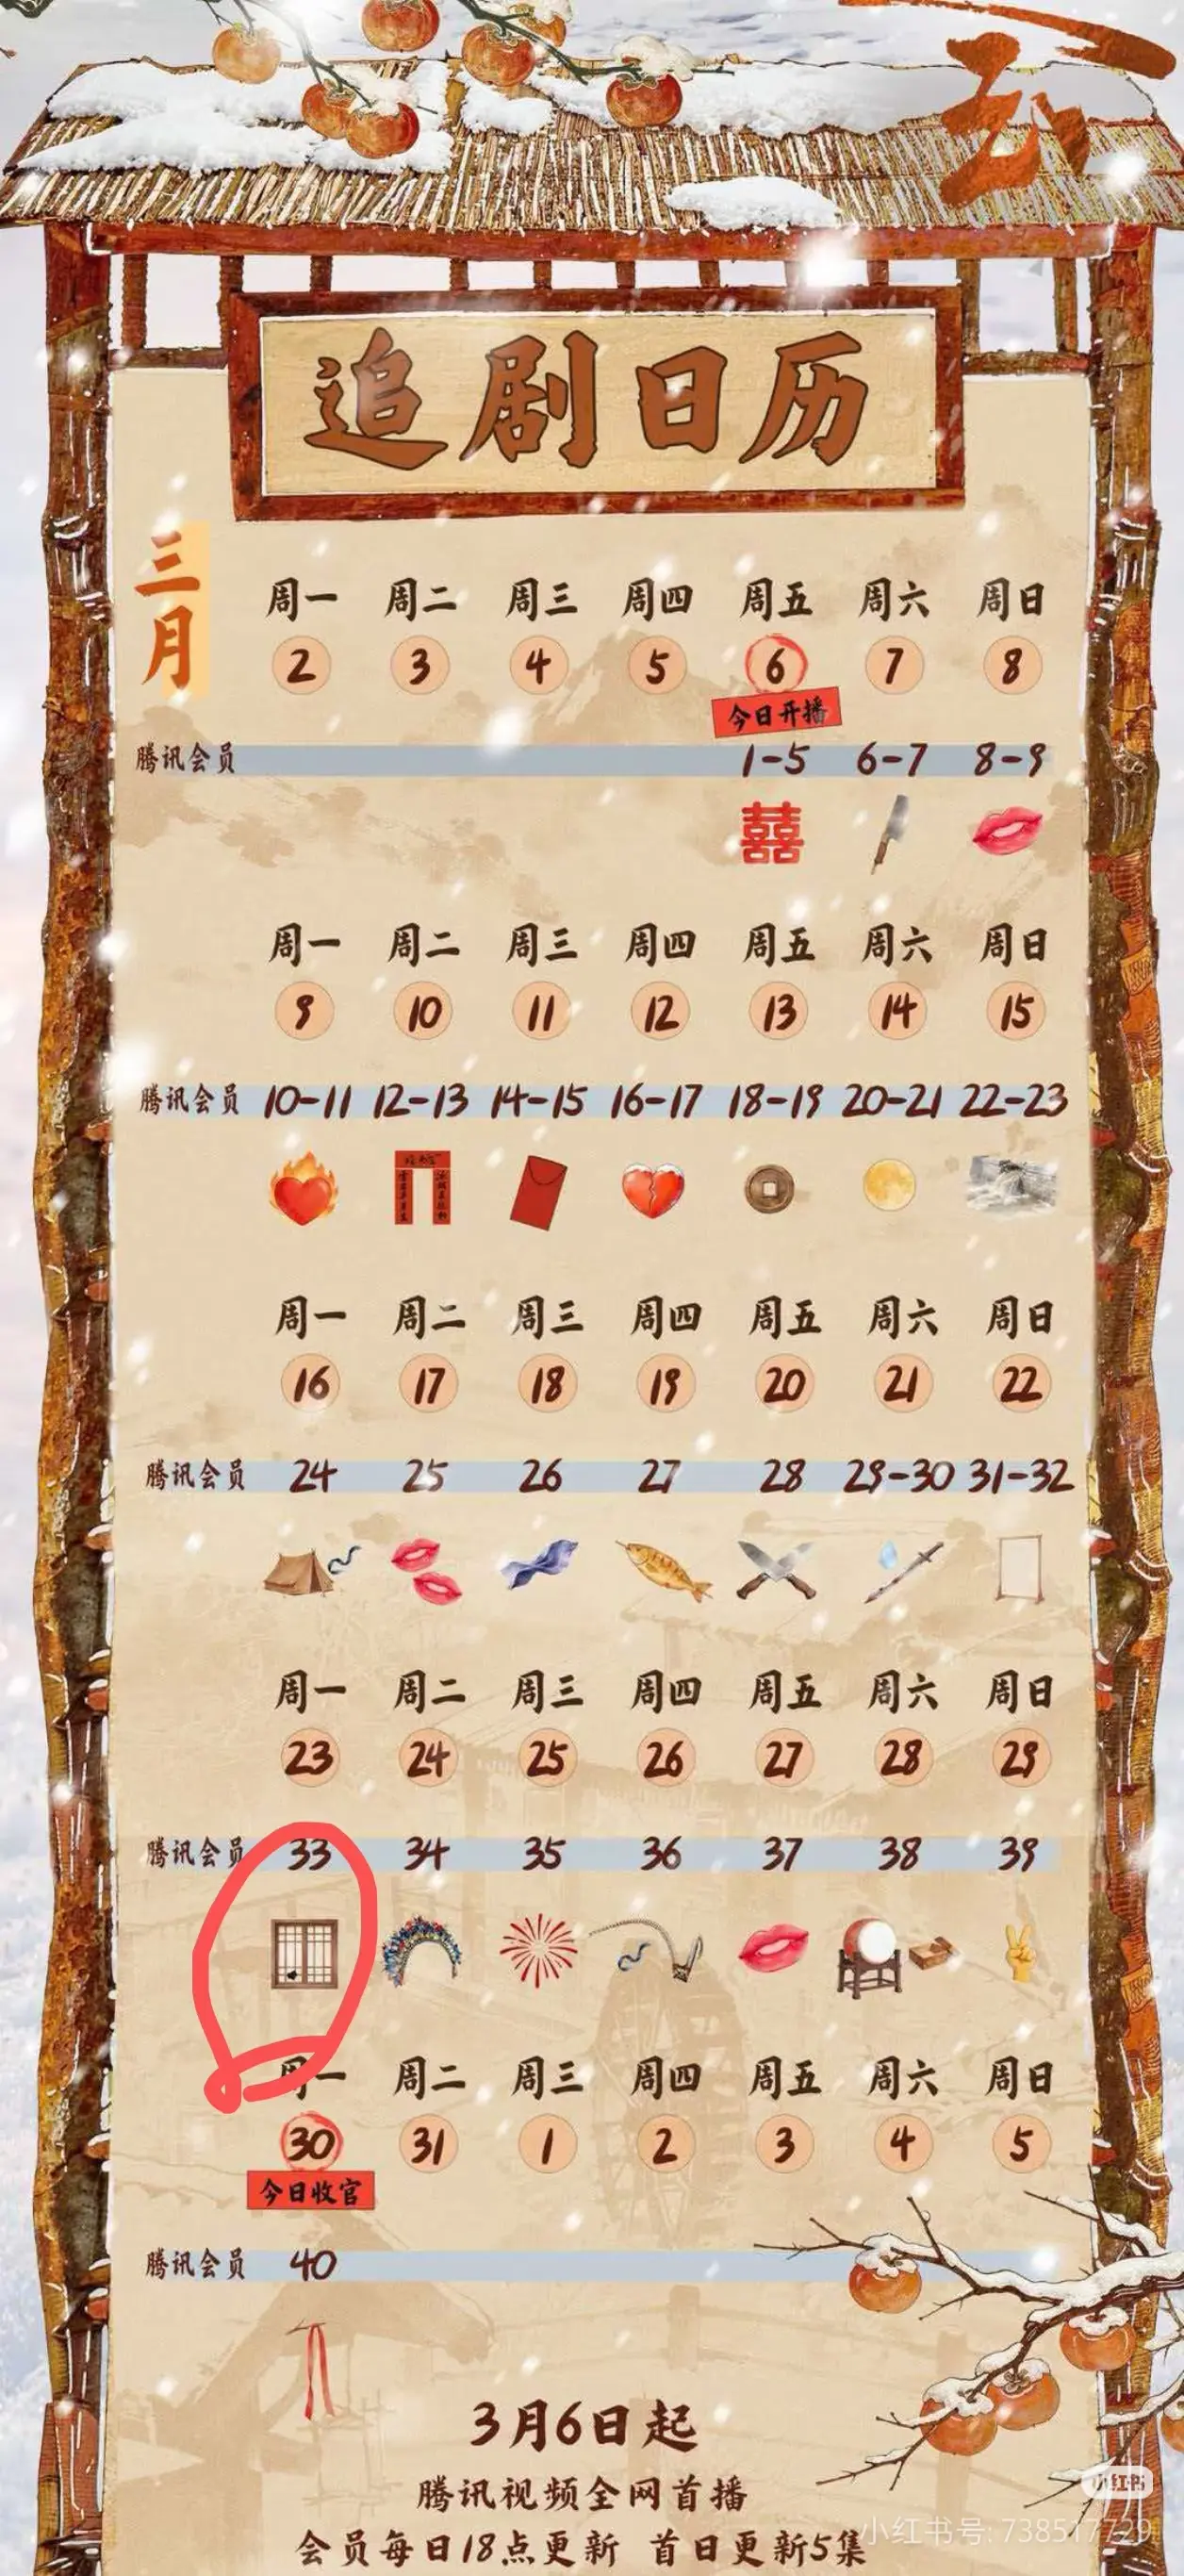 追剧日历
三月
周一 周二 周三 周四 周五 周六 周日
2 3 4 5 6 7 8
今日开播
腾讯会员 1-5 6-7 8-9
囍
周一 周二 周三 周四 周五 周六 周日
9 10 11 12 13 14 15
腾讯会员 10-11 12-13 14-15 16-17 18-19 20-21 22-23
周一 周二 周三 周四 周五 周六 周日
16 17 18 19 20 21 22
腾讯会员 24 25 26 27 28 29-30 31-32
周一 周二 周三 周四 周五 周六 周日
23 24 25 26 27 28 29
腾讯会员 33 34 35 36 37 38 39
周一 周二 周三 周四 周五 周六 周日
30 31 1 2 3 4 5
今日收官
腾讯会员 40
3月6日起
腾讯视频全网首播
会员每日18点更新 首日更新5集
小红书
小红书号: 738517729